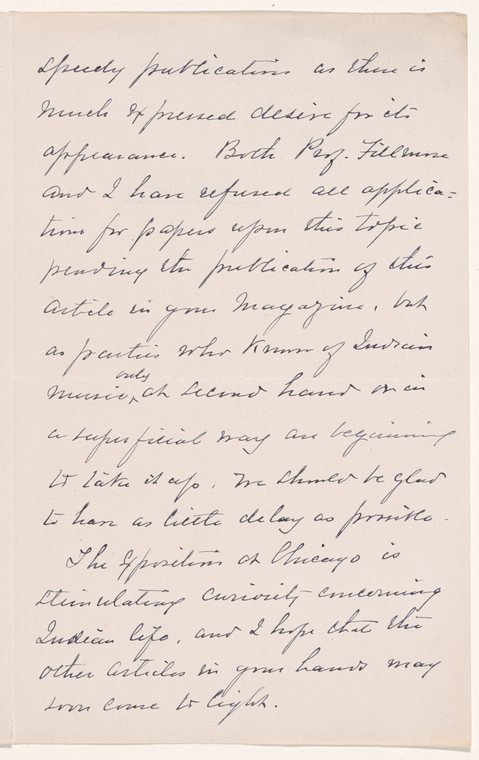 speedy publication as there is
much expressed desire for its
appearance. Both Prof. Fillmore
and I have refused all applica-
tions for papers upon this topic
pending the publication of this
article in your Magazine, but
as parties who know of Indian
music, only at second hand or in
a superficial way are beginning
to take it up, we should be glad
to have as little delay as possible.
The Exposition at Chicago is
stimulating curiosity concerning
Indian life, and I hope that the
other articles in your hands may
soon come to light.